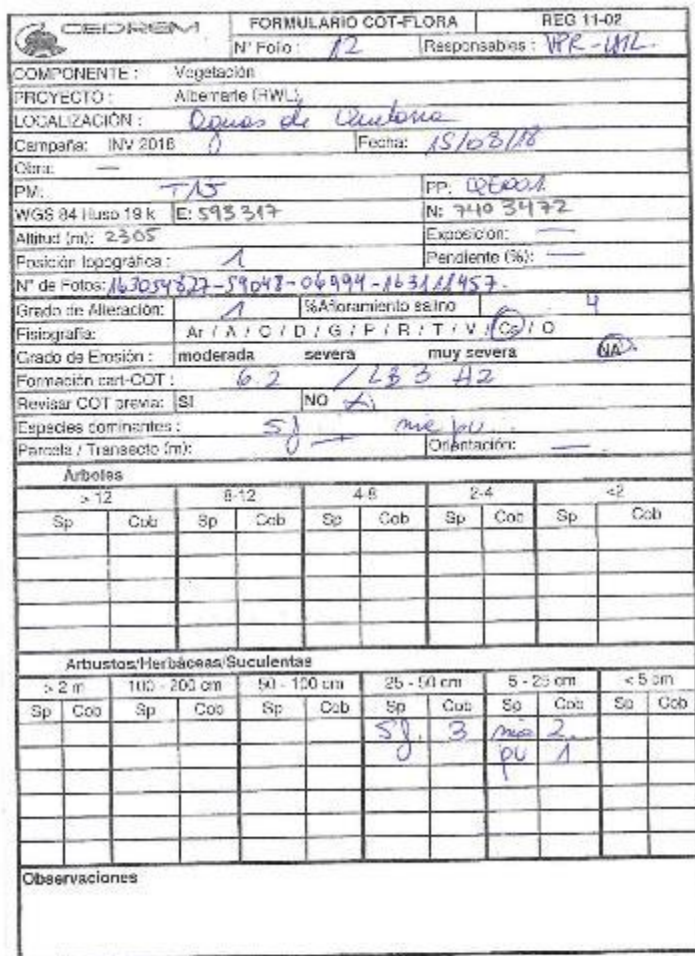 CEDREM FORMULARIO COT-FLORA REG 11-02
N° Folio : 12 Responsables : VPR -
COMPONENTE : Vegetación
PROYECTO : Albemarle (RWL)
LOCALIZACIÓN : de
Campaña: INV 2018 Fecha: 15/08/18
Obra: —
PM: T15 PP:
WGS 84 Huso 19 k E: 593317 N: 7403472
Altitud (m): 2305 Exposición: —
Posición topográfica : 1 Pendiente (%): —
N° de Fotos:
Grado de Alteración: 1 %Afloramiento salino 4
Fisiografía: Ar / A / C / D / G / P / R / T / V / Cs / O
Grado de Erosión : moderada severa muy severa NA
Formación cart-COT : 6.2 / LB 3 H2
Revisar COT previa: SI NO
Especies dominantes : SJ pu
Parcela / Transecto (m): — Orientación: —
Árboles
> 12 8-12 4-8 2-4 <2
Sp Cob Sp Cob Sp Cob Sp Cob Sp Cob
Arbustos/Herbáceas/Suculentas
> 2 m 100 - 200 cm 50 - 100 cm 25 - 50 cm 5 - 25 cm < 5 cm
Sp Cob Sp Cob Sp Cob Sp Cob Sp Cob Sp Cob
SJ. 3 2
pu 1
Observaciones